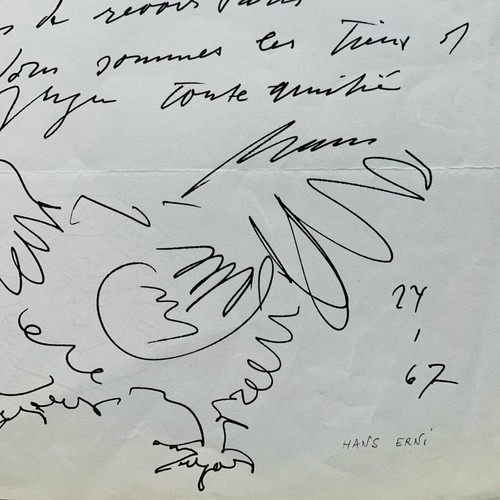 de revoir Paris
Nous sommes les Tiens et
toute amitié
Hans
27
1
67
HANS ERNI